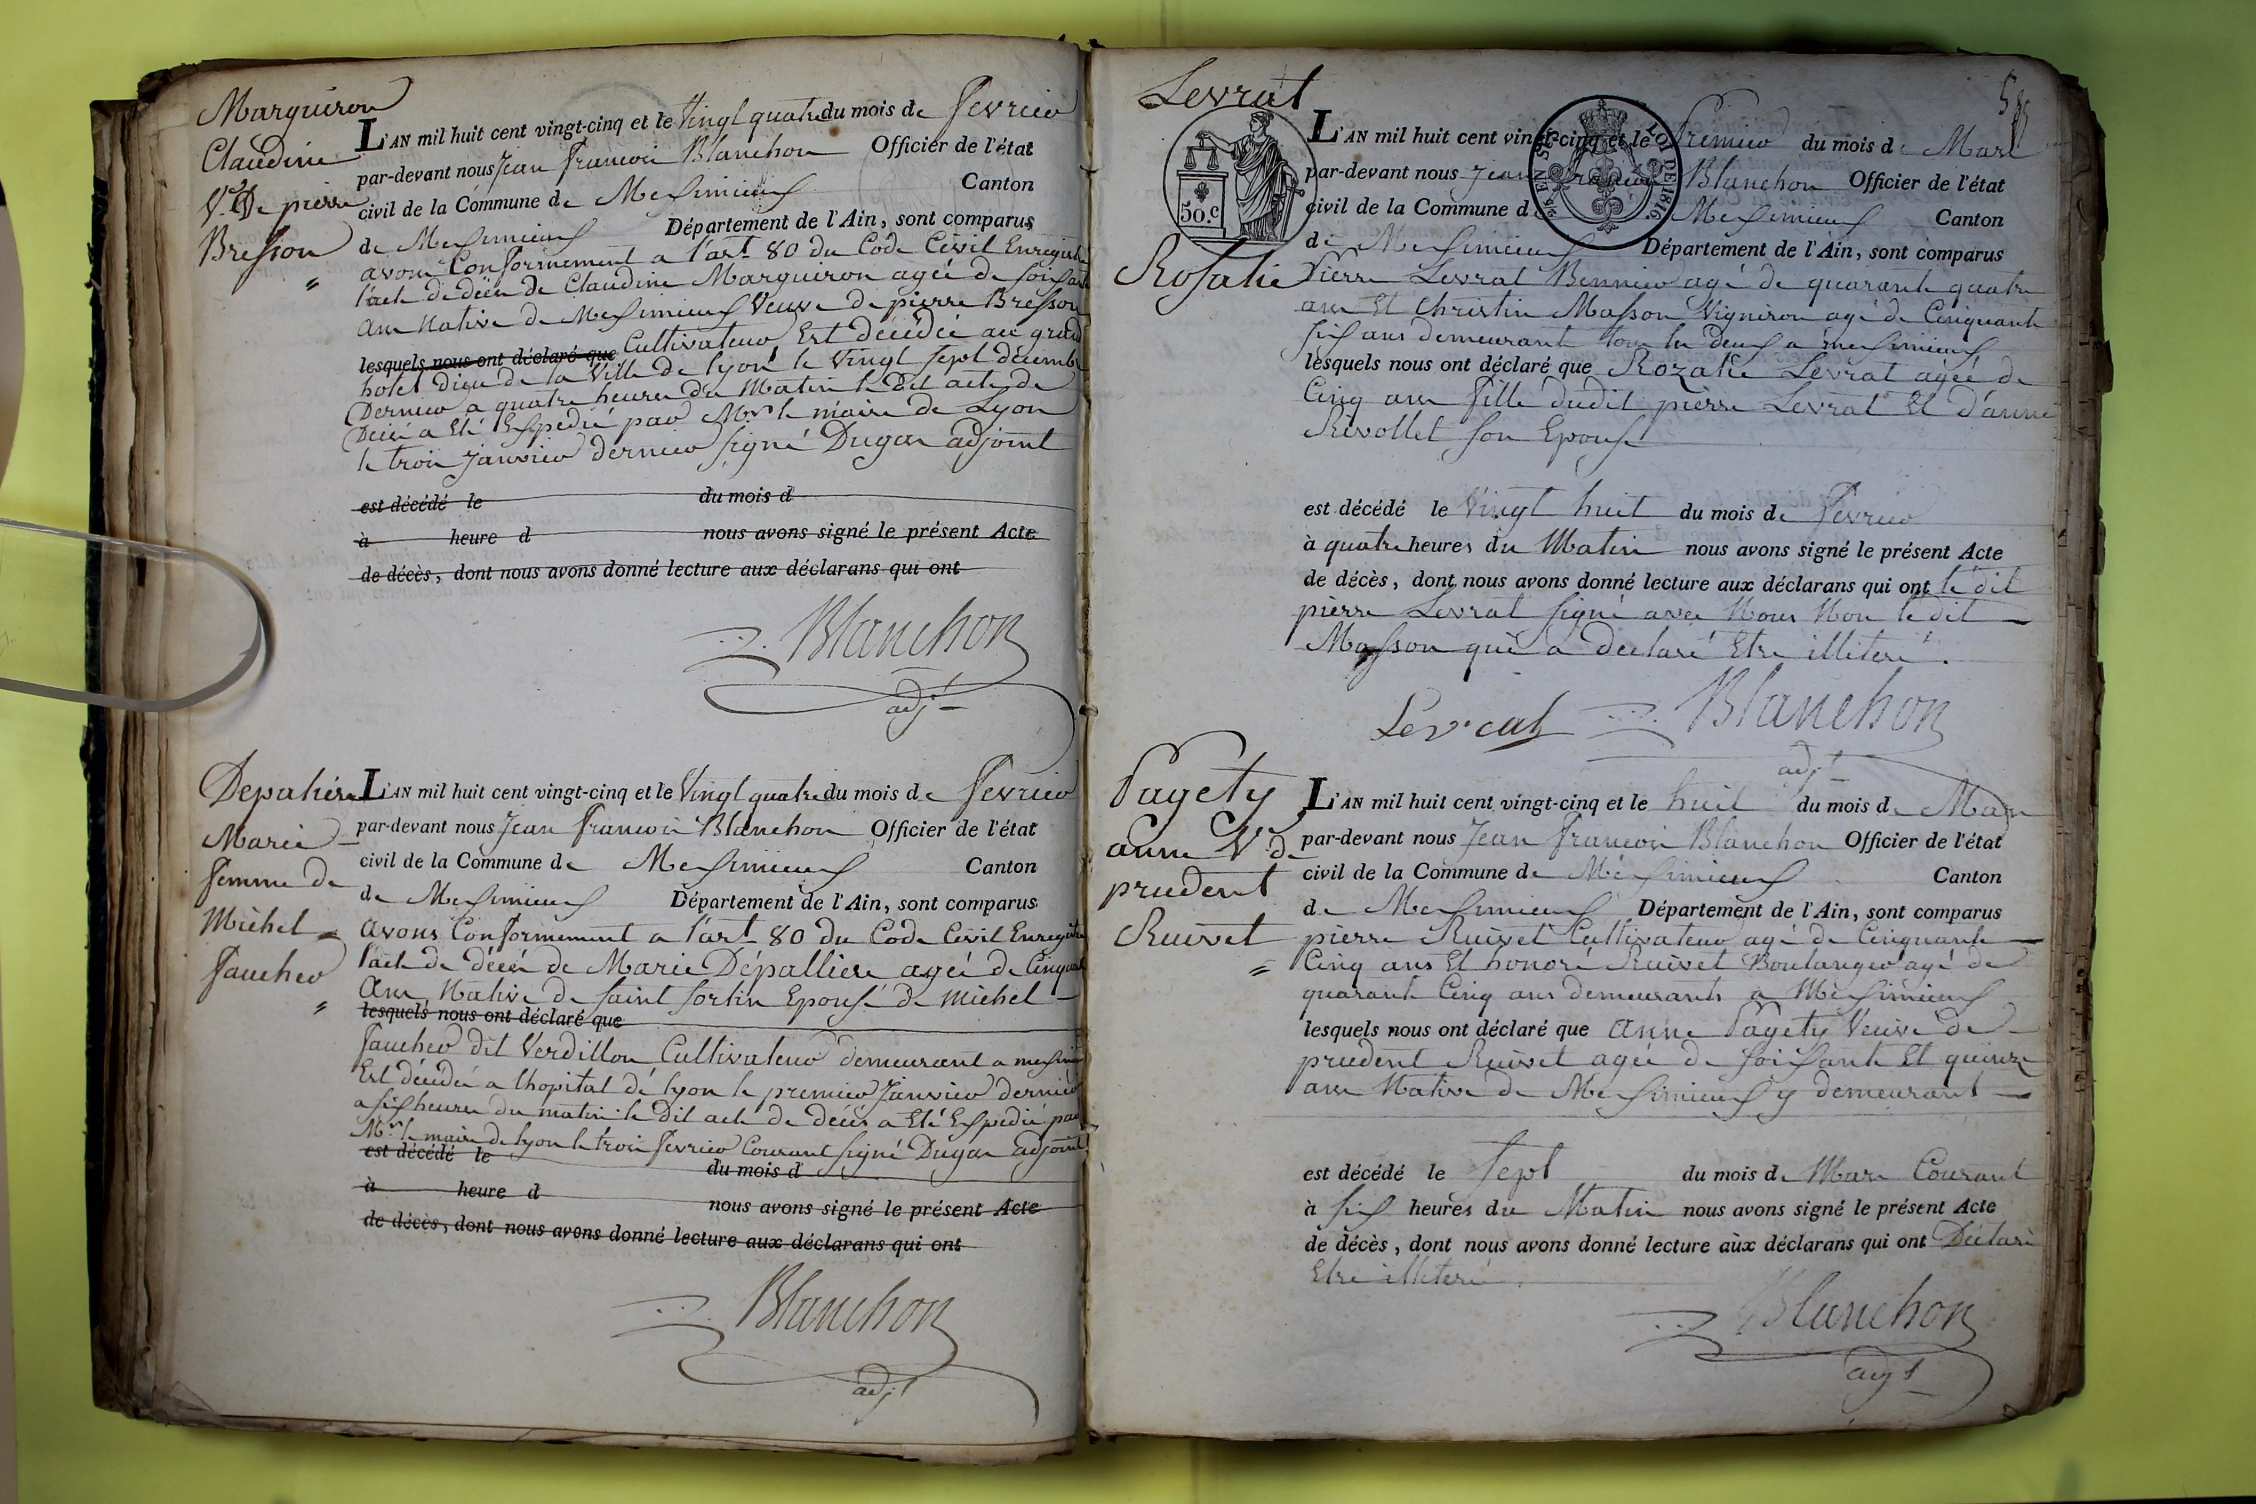 Marguiron
Claudine
V.e De pierre
Bresson
L'AN mil huit cent vingt-cinq et le Vingt quatre du mois de fevrier
par-devant nous Jean francois Blanchon Officier de l'état
civil de la Commune de Messimieux Canton
de Messimieux Département de l'Ain, sont comparus
avons Conformement a l'art 80 du Code Civil Enregistré
l'acte de décès de Claudine Marguiron agée de soissante
ans Native de Messimieux Veuve de pierre Bresson
lesquels nous ont déclaré que Cultivateur Est décédée au grand
hotel Dieu de la Ville de Lyon le Vingt sept décembre
Dernier a quatre heures du Matin le Dit acte de
Décès a Eté Expedié par Mr le maire de Lyon
le trois Janvier dernier signé Dugas adjoint
est décédé le du mois d
à heure d nous avons signé le présent Acte
de décès, dont nous avons donné lecture aux déclarans qui ont
Blanchon
adjt
Depaliere
Marie
femme de
Michel
faucher
L'AN mil huit cent vingt-cinq et le Vingt quatre du mois de fevrier
par-devant nous Jean francois Blanchon Officier de l'état
civil de la Commune de Messimieux Canton
de Messimieux Département de l'Ain, sont comparus
avons Conformement a l'art 80 du Code Civil Enregistré
l'acte de décès de Marie Dépalliere agée de Cinquante
ans Native de saint sorlin Epouse de Michel
lesquels nous ont déclaré que
faucher dit Verdillon Cultivateur demeurant a messimieux
Est décédée a lhopital de lyon le premier Janvier dernier
a six heures du matin le Dit acte de décès a Eté Expedié par
Mr le maire de lyon le trois fevrier Courant signé Dugas adjoint
est décédé le du mois d
à heure d nous avons signé le présent Acte
de décès, dont nous avons donné lecture aux déclarans qui ont
Blanchon
adjt
Levrat
Rosalie
50.c
LOI DE 1816
L'AN mil huit cent vingt-cinq et le Premier du mois de Mars
par-devant nous Jean francois Blanchon Officier de l'état
civil de la Commune de Messimieux Canton
de Messimieux Département de l'Ain, sont comparus
Pierre Levrat Bennier agé de quarante quatre
ans Et Christin Masson Vigniron agé de Cinquante
six ans demeurant tous les deux a messimieux
lesquels nous ont déclaré que Rozalie Levrat agée de
Cinq ans fille dudit pierre Levrat Et d'anne
Rivollet son Epouse
est décédé le Vingt huit du mois de fevrier
à quatre heures du Matin nous avons signé le présent Acte
de décès, dont nous avons donné lecture aux déclarans qui ont le dit
pierre Levrat signé avec Nous Non le dit
Masson qui a declaré Etre illiteré.
Levrat Blanchon
adjt
Pagety
anne V.e de
prudent
Ruivet
L'AN mil huit cent vingt-cinq et le huit du mois de Mars
par-devant nous Jean francois Blanchon Officier de l'état
civil de la Commune de Messimieux Canton
de Messimieux Département de l'Ain, sont comparus
pierre Ruivet Cultivateur agé de Cinquante
Cinq ans Et honoré Ruivet Boulanger agé de
quarante Cinq ans demeurants a Messimieux
lesquels nous ont déclaré que anne Pagety Veuve de
prudent Ruivet agée de soissante Et quinze
ans Native de Messimieux y demeurant
est décédé le sept du mois de Mars Courant
à six heures du Matin nous avons signé le présent Acte
de décès, dont nous avons donné lecture aux déclarans qui ont Déclaré
Etre illiteré
Blanchon
adjt